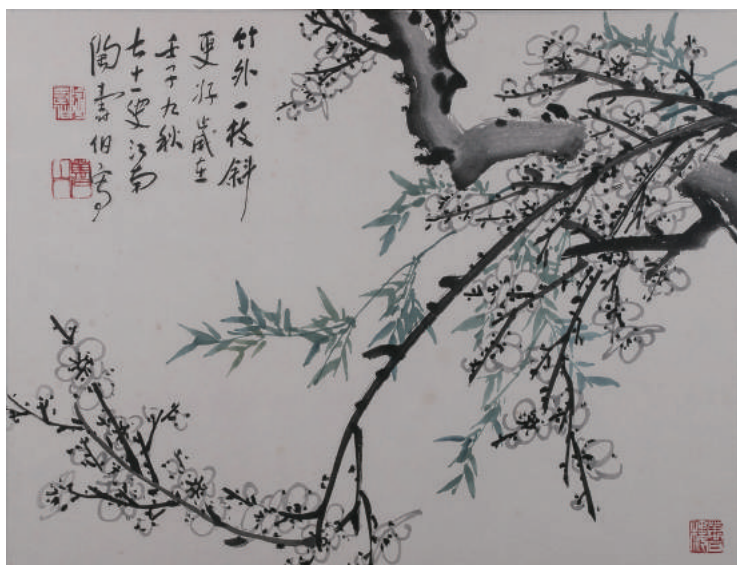 竹外一枝斜
更好歲在
壬子九秋
七十一叟江南
陶壽伯寫